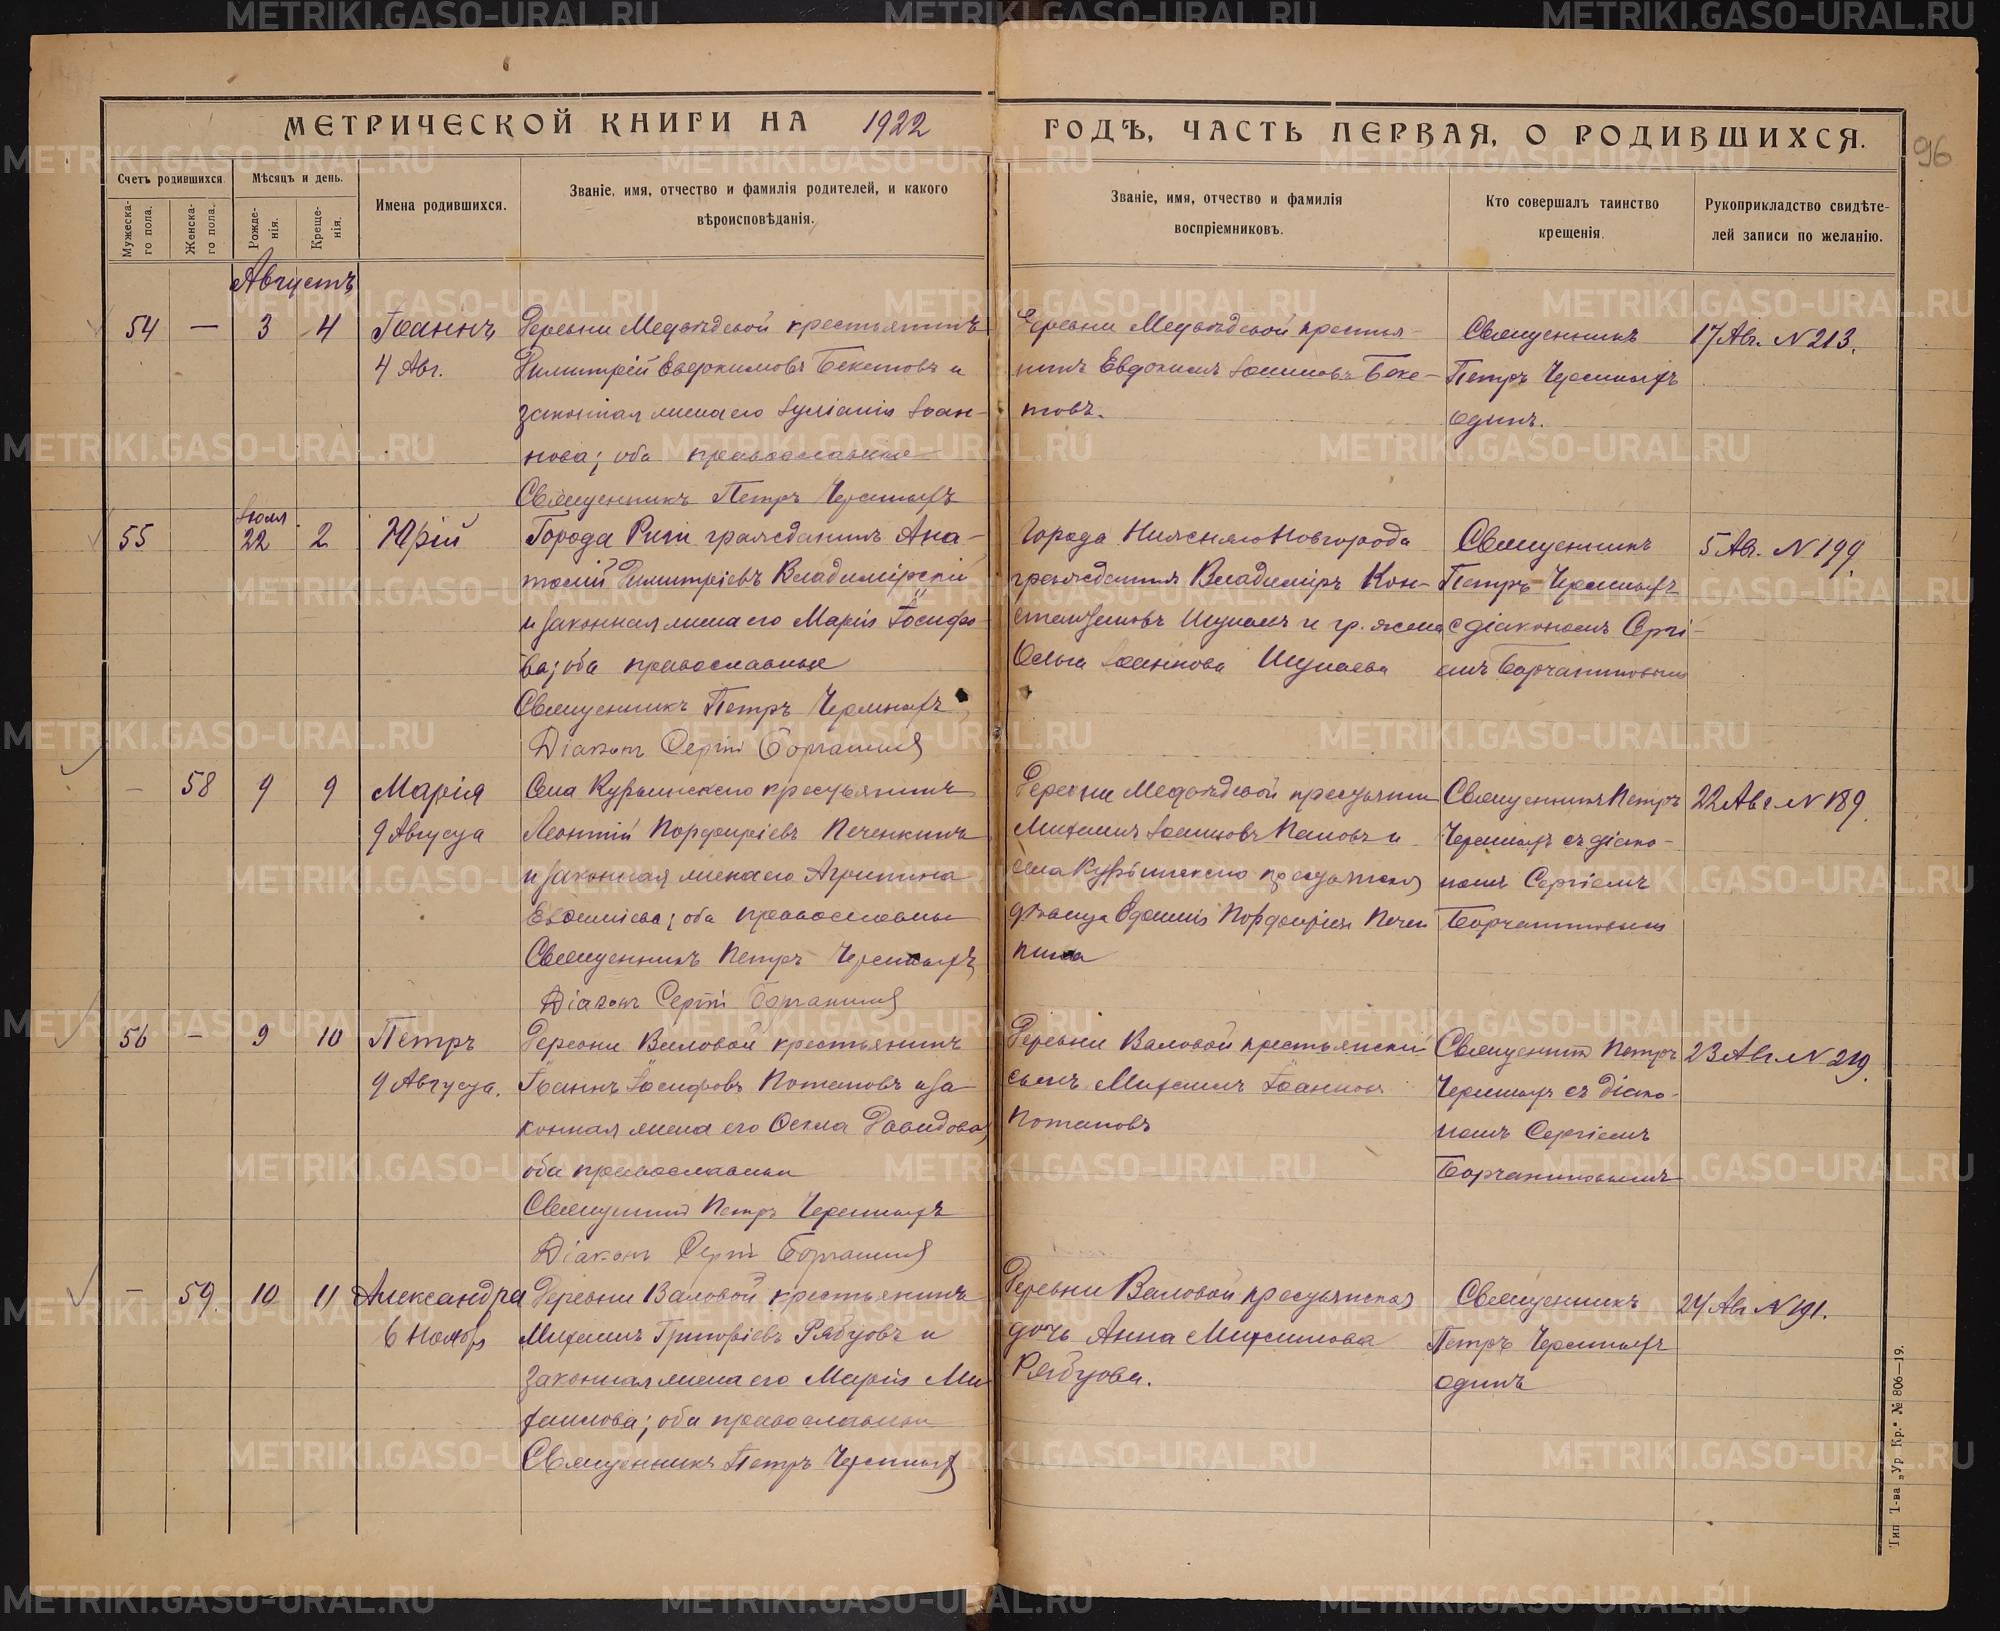 МЕТРИЧЕСКОЙ КНИГИ НА 1922 ГОДЪ, ЧАСТЬ ПЕРВАЯ, О РОДИВШИХСЯ.
96
Счетъ родившихся.
Мужеска-
го пола.
Женска-
го пола.
Мѣсяцъ и день.
Рожде-
нія.
Креще-
нія.
Имена родившихся.
Званіе, имя, отчество и фамилія родителей, и какого
вѣроисповѣданія.
Званіе, имя, отчество и фамилія
воспріемниковъ.
Кто совершалъ таинство
крещенія.
Рукоприкладство свидѣте-
лей записи по желанію.
Августъ
54 — 3 4
Іоаннъ
4 Авг.
Деревни Медвѣдевой крестьянинъ
Димитрій Евдокимовъ Бекетовъ и
законная жена его Іуліанія Іоан-
нова; оба православные
Священникъ Петръ
Деревни Медвѣдевой кресть-
нинъ Евдокимъ Іоанновъ Беке-
товъ.
Священникъ
Петръ
одинъ.
17 Авг. № 213.
55 Іюля 22 2
Юрій
Города Риги гражданинъ Ана-
толій Димитріевъ Владимірскій
и законная жена его Марія Іосифо-
ва; оба православные
Священникъ Петръ
Діаконъ Сергій
Города Нижняго Новгорода
гражданинъ Владиміръ Кон-
и гр. жена
Ольга Іоаннова
Священникъ
Петръ
с діакономъ Сергі-
емъ
5 Авг. № 199.
— 58 9 9
Марія
9 Августа
Села Курьинскаго крестьянинъ
Леонтій Порфиріевъ Печенкинъ
и законная жена его Агрипина
оба православные
Священникъ Петръ
Діаконъ Сергій
Деревни Медвѣдевой крестьянин
Михаилъ Іоанновъ Пановъ и
села Курьинскаго крестьянская
дѣвица Порфирія Печен
кина
Священникъ Петръ
съ діако-
номъ Сергіемъ
22 Авг № 189.
56 — 9 10
Петръ
9 Августа.
Деревни Валовой крестьянинъ
Іоаннъ Іосифовъ Потаповъ и за-
конная жена его Давидова,
оба православные
Священникъ Петръ
Діаконъ Сергій
Деревни Валовой крестьянскій
сынъ Михаилъ Іоанновъ
Потаповъ
Священникъ Петръ
съ діако-
номъ Сергіемъ
23 Авг № 219.
— 59. 10 11
Александра
6 Ноябр
Деревни Валовой крестьянинъ
Михаилъ Григоріевъ Рябуовъ и
законная жена его Марія Ми-
хаилова; оба православные
Священникъ Петръ
Деревни Валовой крестьянская
дочь Анна Михаилова
Рябуова.
Священникъ
Петръ
одинъ
24 Авг № 191.
Тип Т-ва „Ур Кр." № 806—19.
METRIKI.GASO-URAL.RU